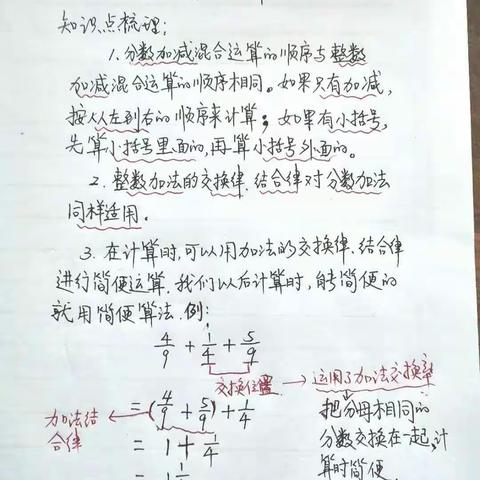 知识点梳理:
1.分数加减混合运算的顺序与整数
加减混合运算的顺序相同。如果只有加减,
按从左到右的顺序来计算;如果有小括号,
先算小括号里面的,再算小括号外面的。
2.整数加法的交换律.结合律对分数加法
同样适用。
3.在计算时,可以用加法的交换律.结合律
进行简便运算.我们以后计算时,能简便的
就用简便算法.例:
4/9 + 1/4 + 5/9
交换位置
运用了加法交换率
= (4/9 + 5/9) + 1/4
加法结
合律
把分母相同的
分数交换在一起,计
算时简便.
= 1 + 1/4
= 1 1